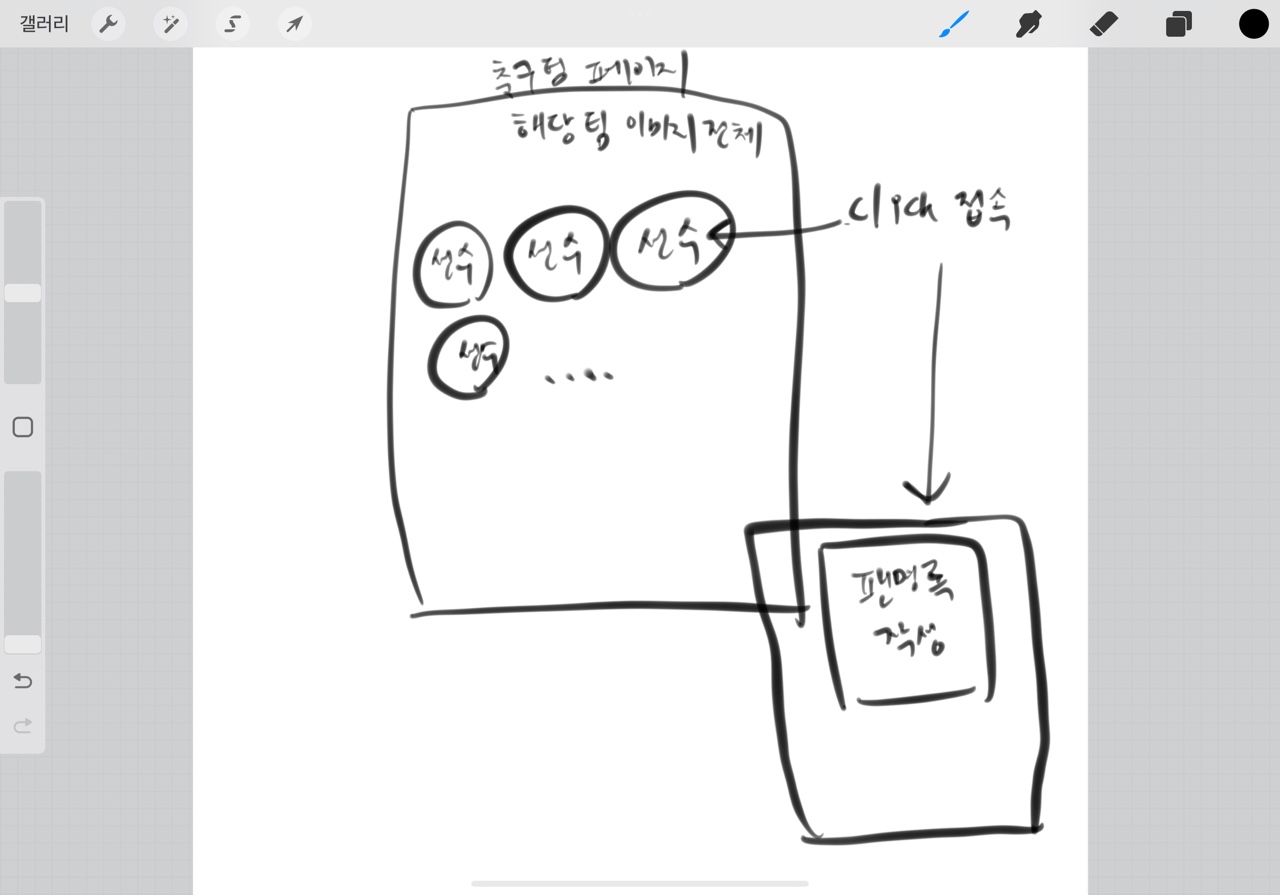 갤러리
축구팀 페이지
해당팀 이미지 전체
선수 선수 선수
click 접속
선수
....
팬명록
작성